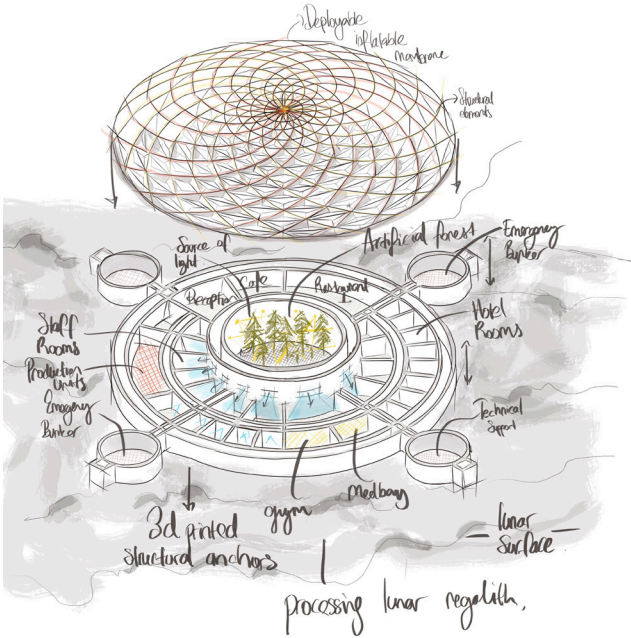 Deployable
inflatable
membrane
Structural
elements
Source of
light
Artificial forest
Emergency
Bunker
Cafe
Reception
Restaurant
Staff
Rooms
Hotel
Rooms
Production
Units
Emergency
Bunker
Technical
Support
medbay
gym
3d printed
structural anchors
lunar
surface
processing lunar regolith.